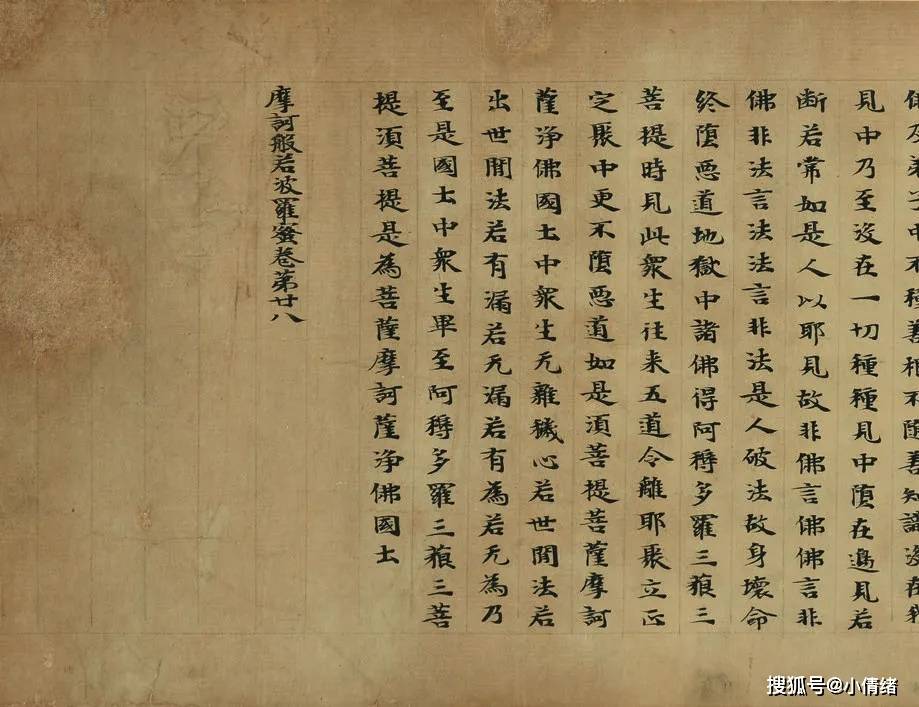 佛及弟子中不種善根不隨善知識没在我
見中乃至没在一切種種見中墮在邊見若
断若常如是人以耶見故非佛言佛佛言非
佛非法言法法言非法是人破法故身壞命
終墮惡道地獄中諸佛得阿耨多羅三藐三
菩提時見此衆生往来五道令離耶聚立正
定聚中更不墮惡道如是須菩提菩薩摩訶
薩淨佛國土中衆生无雜穢心若世間法若
出世間法若有漏若无漏若有為若无為乃
至是國土中衆生畢至阿耨多羅三藐三菩
提須菩提是為菩薩摩訶薩淨佛國土
摩訶般若波羅蜜卷第廿八
搜狐号@小倩绪